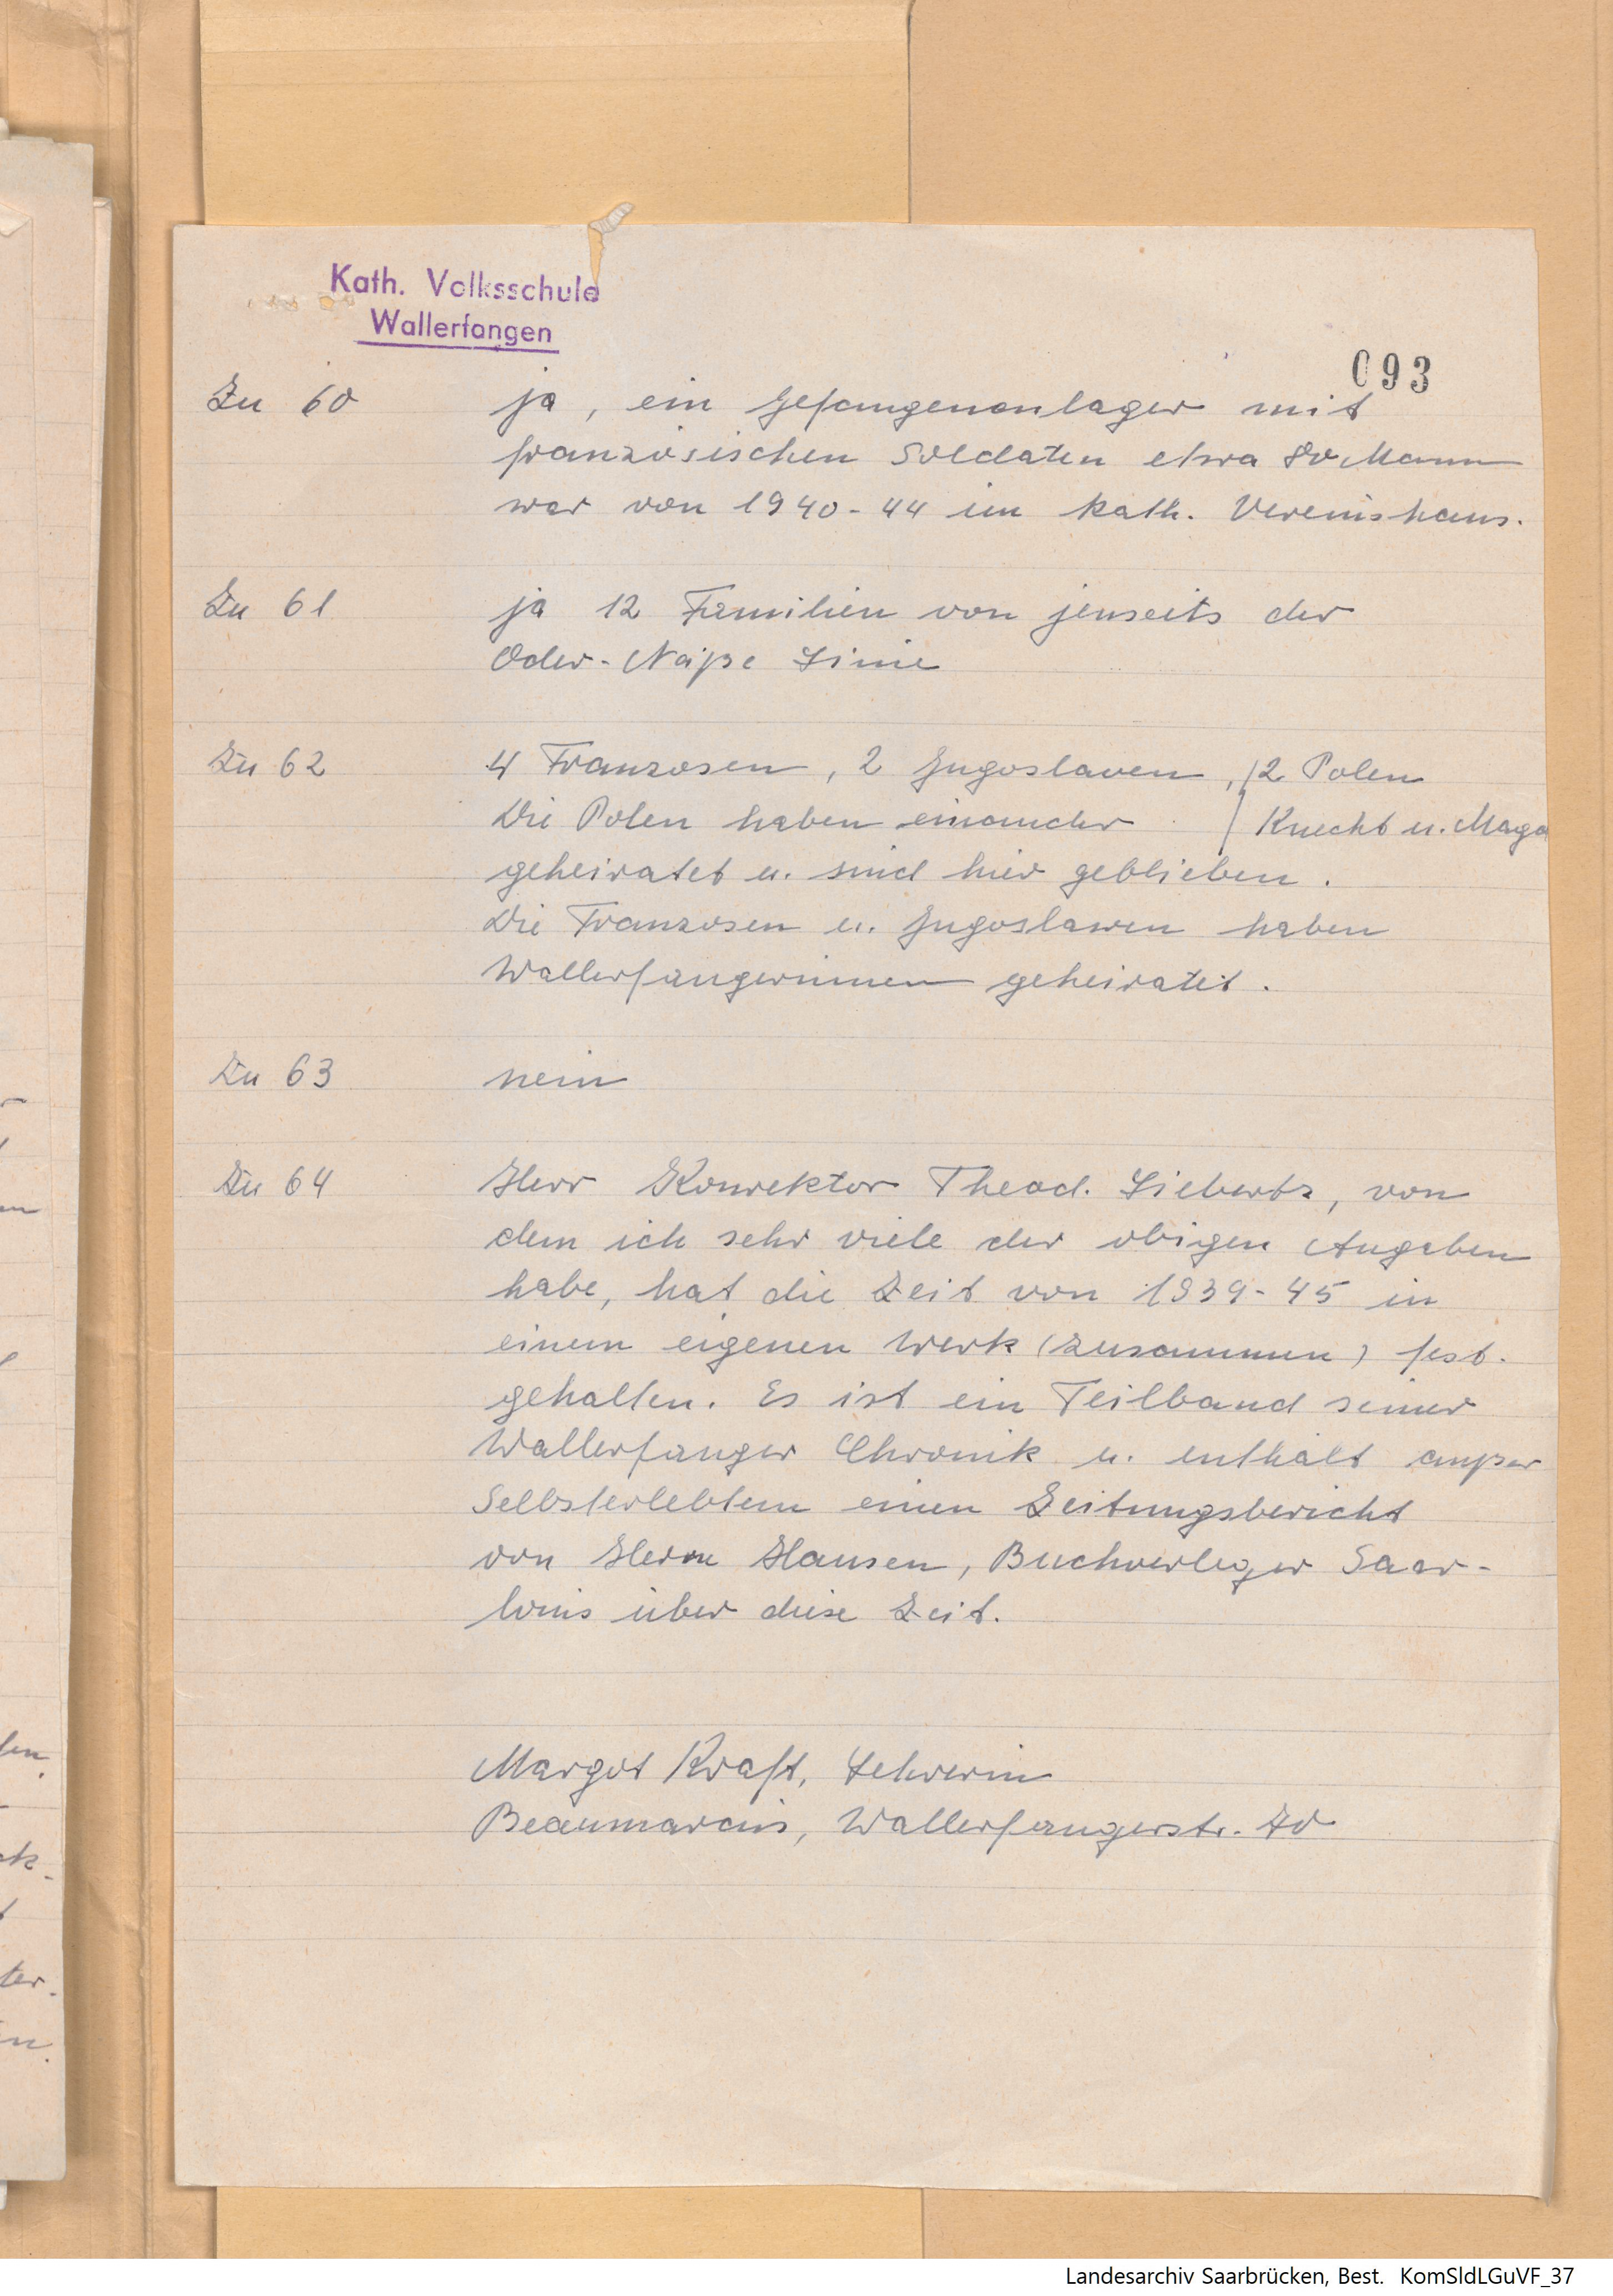 Kath. Volksschule
Wallerfangen
093
Zu 60 ja, ein Gefangenenlager mit
französischen Soldaten etwa 80 Mann
war von 1940-44 im kath. Vereinshaus.
Zu 61 ja 12 Familien von jenseits der
Oder-Neiße Linie
Zu 62 4 Franzosen, 2 Jugoslaven, 2 Polen
Die Polen haben einander Knecht u. Magd
geheiratet u. sind hier geblieben.
Die Franzosen u. Jugoslawen haben
Wallerfangerinnen geheiratet.
Zu 63 nein
Zu 64 Herr Konrektor Theod. Liebertz, von
dem ich sehr viele der obigen Angaben
habe, hat die Zeit von 1939-45 in
einem eigenen Werk (zusammen) fest-
gehalten. Es ist ein Teilband seiner
Wallerfanger Chronik u. enthält außer
Selbsterlebtem einen Zeitungsbericht
von Herrn Hausen, Buchverleger Saar-
louis über diese Zeit.
Margot Kraft, Lehrerin
Beaumarais, Wallerfangerstr.
ten.
ter.
Landesarchiv Saarbrücken, Best. KomSldLGuVF_37